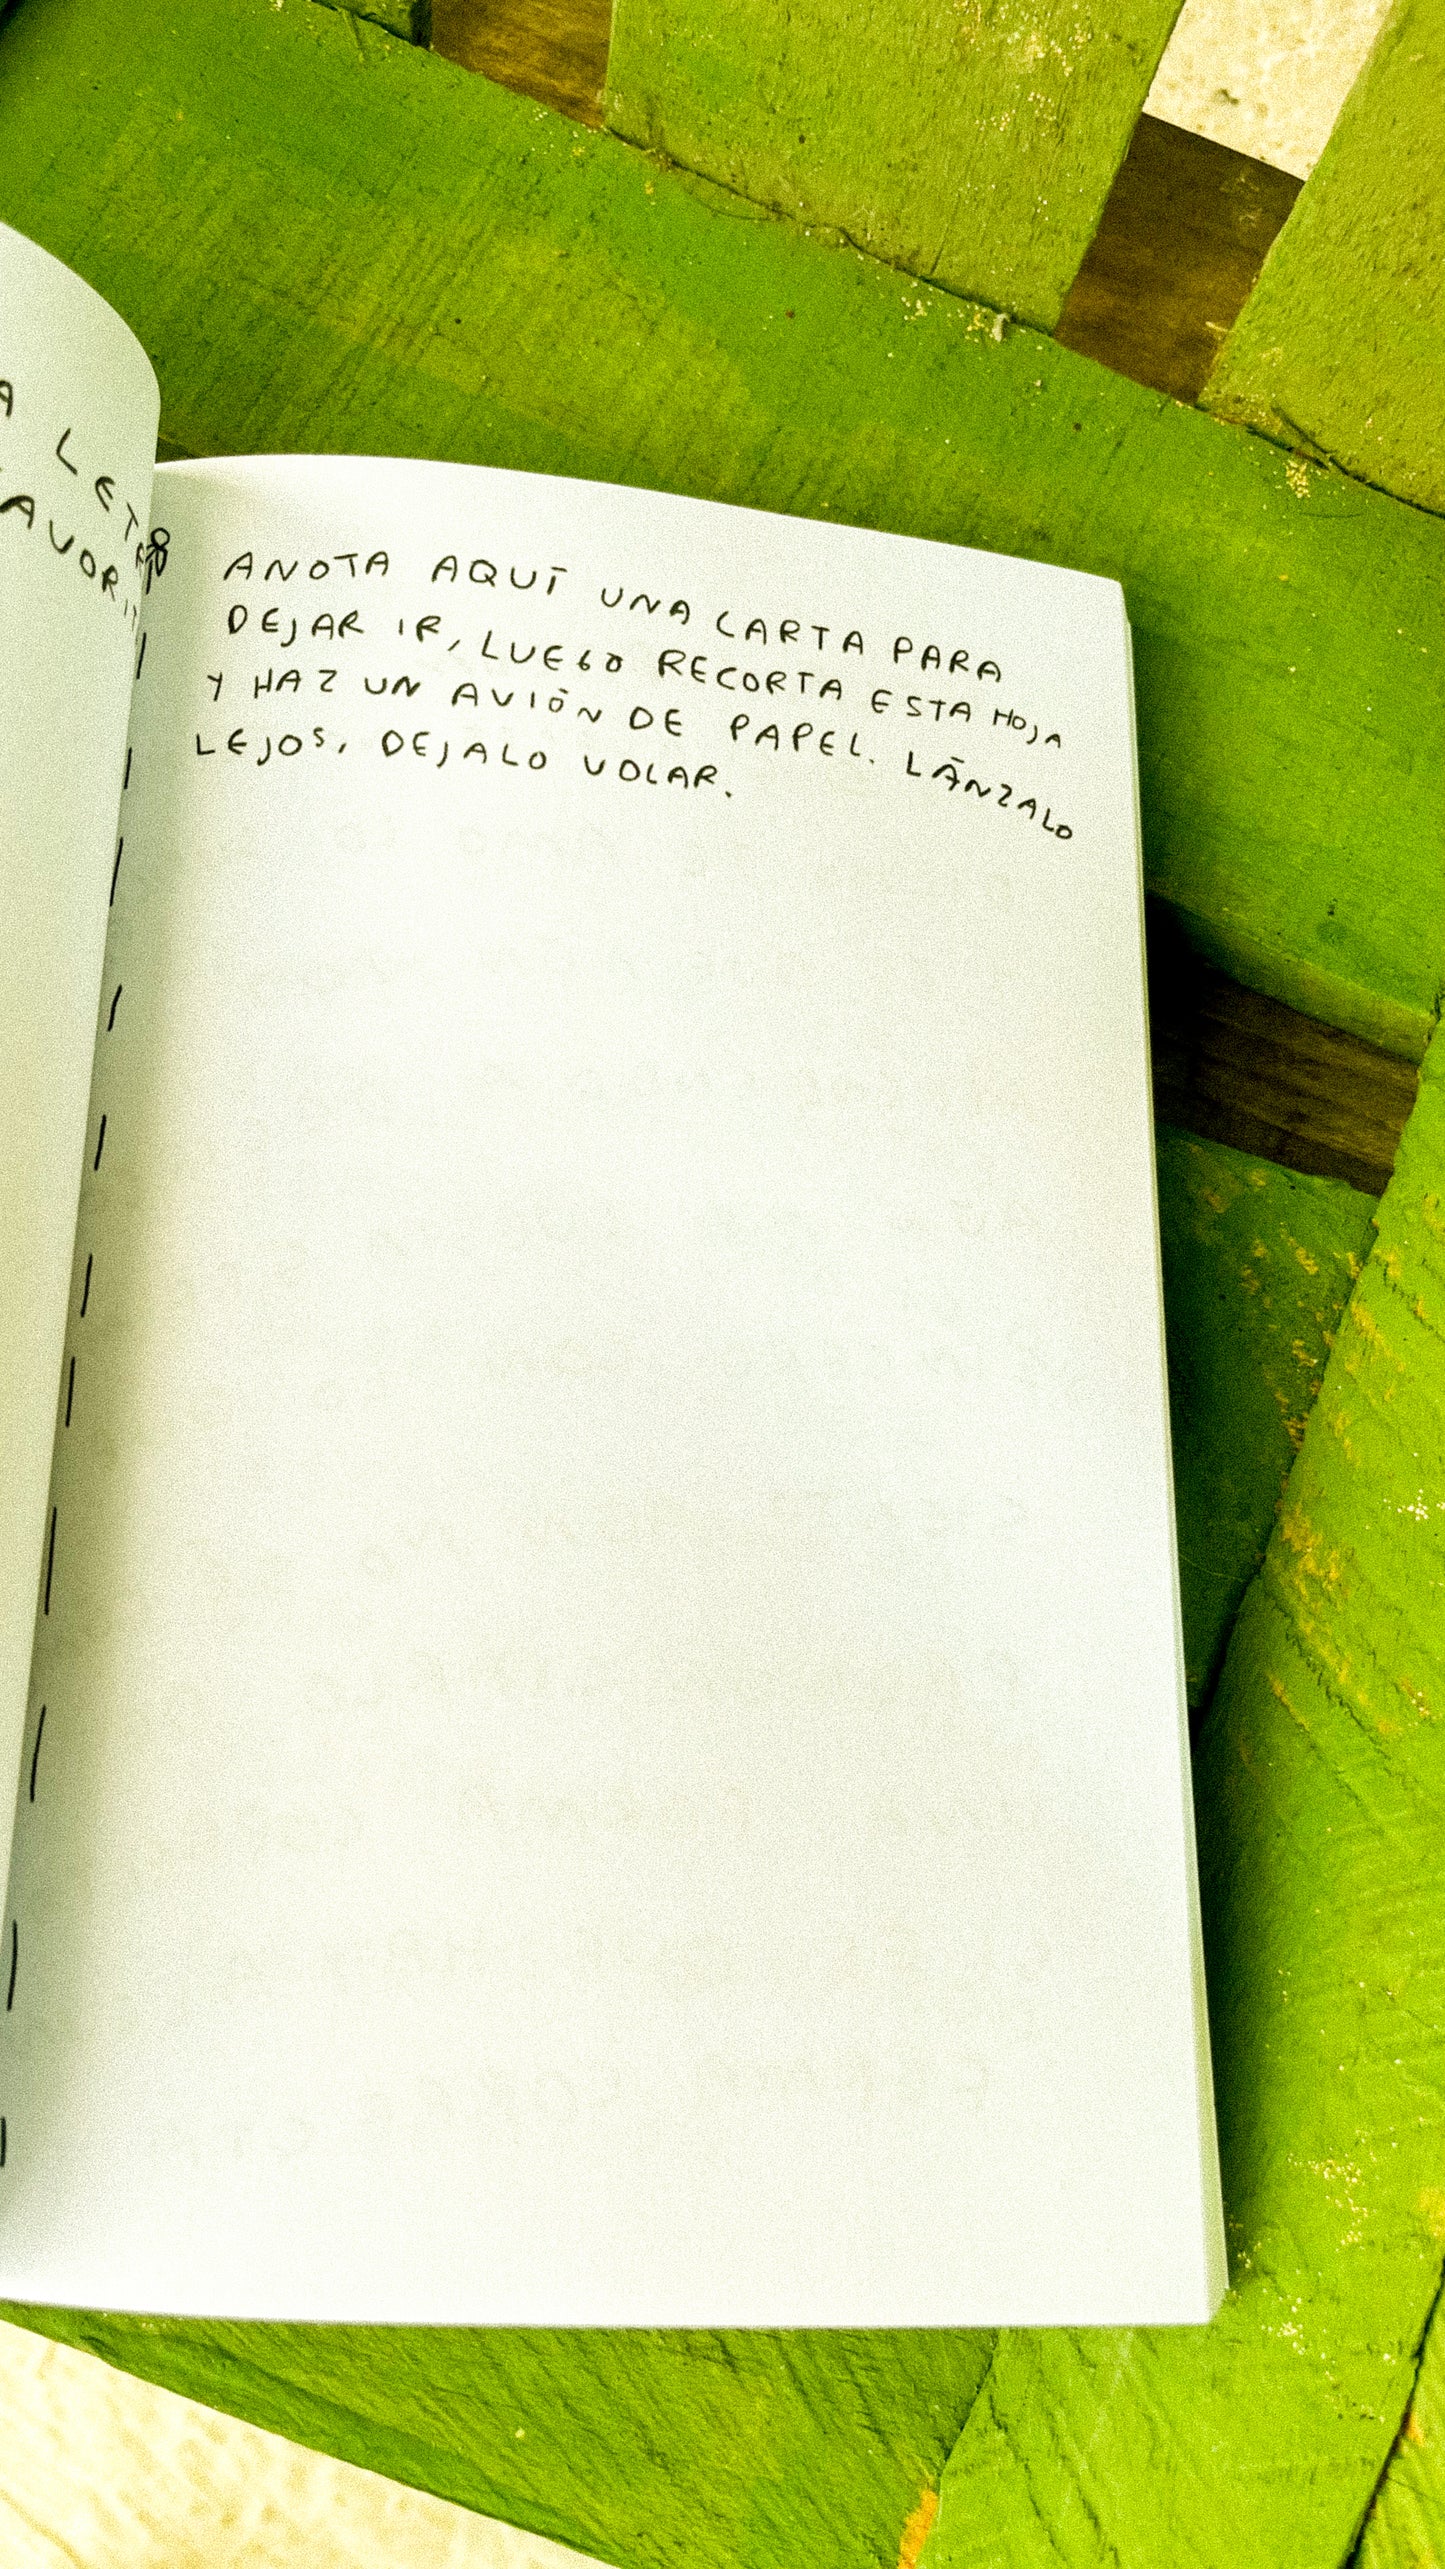 A LETRA
FAVORIT
ANOTA AQUÍ UNA CARTA PARA
DEJAR IR, LUEGO RECORTA ESTA HOJA
Y HAZ UN AVIÓN DE PAPEL. LÁNZALO
LEJOS, DEJALO VOLAR.